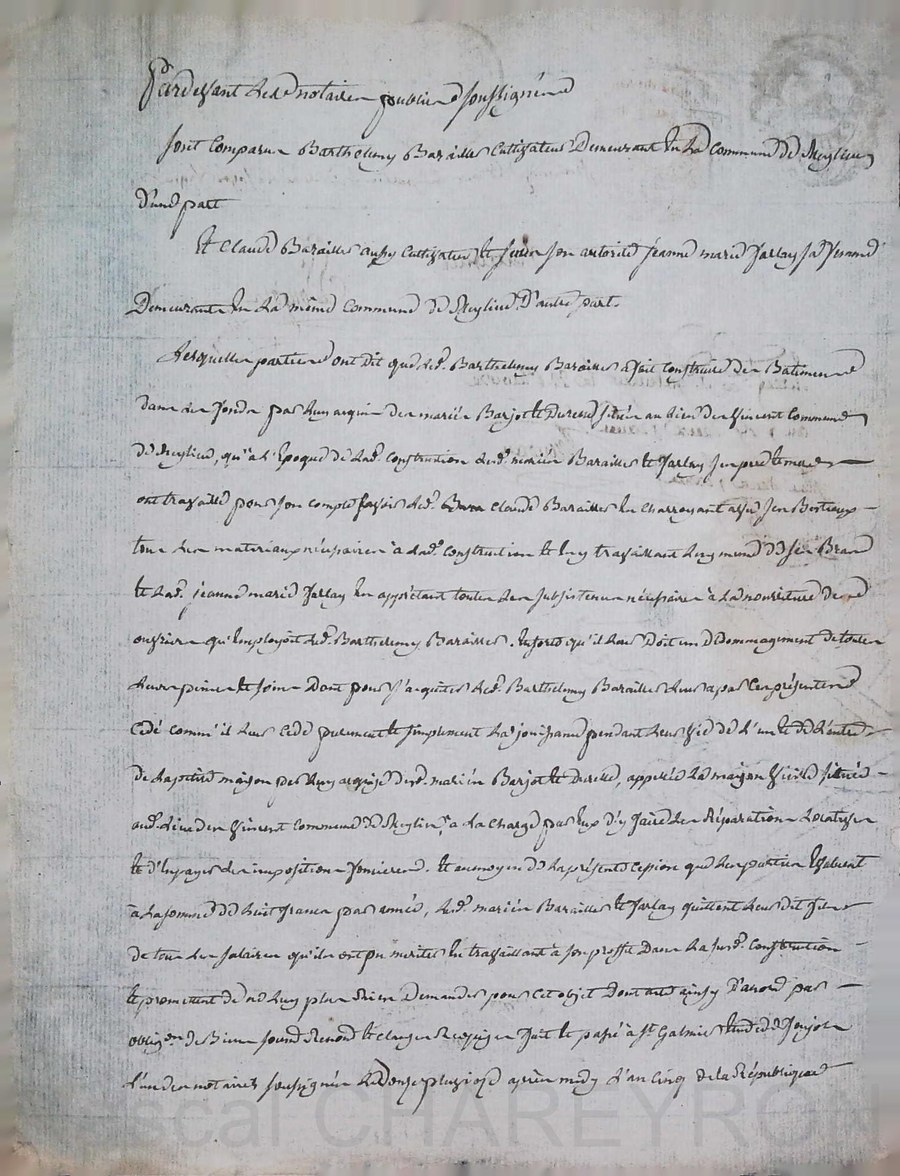 Pardevant Les notaires publics soussignés
sont Comparus Barthelemy Barailler Cultivateur Demeurant En La Commune de Meylieu
D'une part
Et Claude Barailler aussy Cultivateur Et sous son autorité jeanne marie Jarlay sa femme
Demeurants En La même Commune de Meylieu D'autre part
Lesquelles parties ont dit que Led. Barthelemy Barailler a fait Construire des Batiments
dans des fonds par Luy acquis des mariés Barjot Et Durelle située au Lieu des Vincent Commune
de Meylieu, qu'à l'Epoque de Lad. Construction Lesd. mariés Barailler Et Jarlay
ont travaillé pour son compte savoir Led. Claude Barailler En Charroyant avec ses Bestiaux
tous Les materiaux nécessaires à Lad. Construction Et En y travaillant Luy meme de ses Bras
Et Lad. jeanne marie Jarlay En apprêtant toutes Les subsistances nécessaires à La nourriture de ce
ouvriers qu'Employoit Led. Barthelemy Barailler. Ensorte qu'il Leur Doit un Dédommagement de toutes
Leurs peines Et soins Dont pour s'acquitter Led. Barthelemy Barailler Leur a par Ces présentes
Cédé comm'il Leur Cède purement Et simplement La jouissance pendant Leur Vie de L'un Et de L'autre
de La petite maison par Luy acquise desd. mariés Barjot Et Durelle, appelée La maison Vieille située
aud. Lieu des Vincent Commune de Meylieu, à La Charge par Eux d'y faire Les Réparations Locatives
Et d'En payer Les impositions foncieres. Et au moyen de La présente Cession que Les parties Evaluent
à La somme de huit francs par année, Lesd. mariés Barailler Et Jarlay quittent Leur dit
de tous Les salaires qu'ils ont pu meriter En travaillant à son proffit Dans La susd. Construction
Et promettent de ne Luy plus Rien Demander pour Cet objet Dont acte ainsy D'accord par
oblig.on de Biens soumis Renon. Et Clauses Requises fait Et passé à St Galmier Etude de
L'un des notaires soussignés Le Douze pluviose après midy L'an Cinq de la République
Pascal CHAREYRON